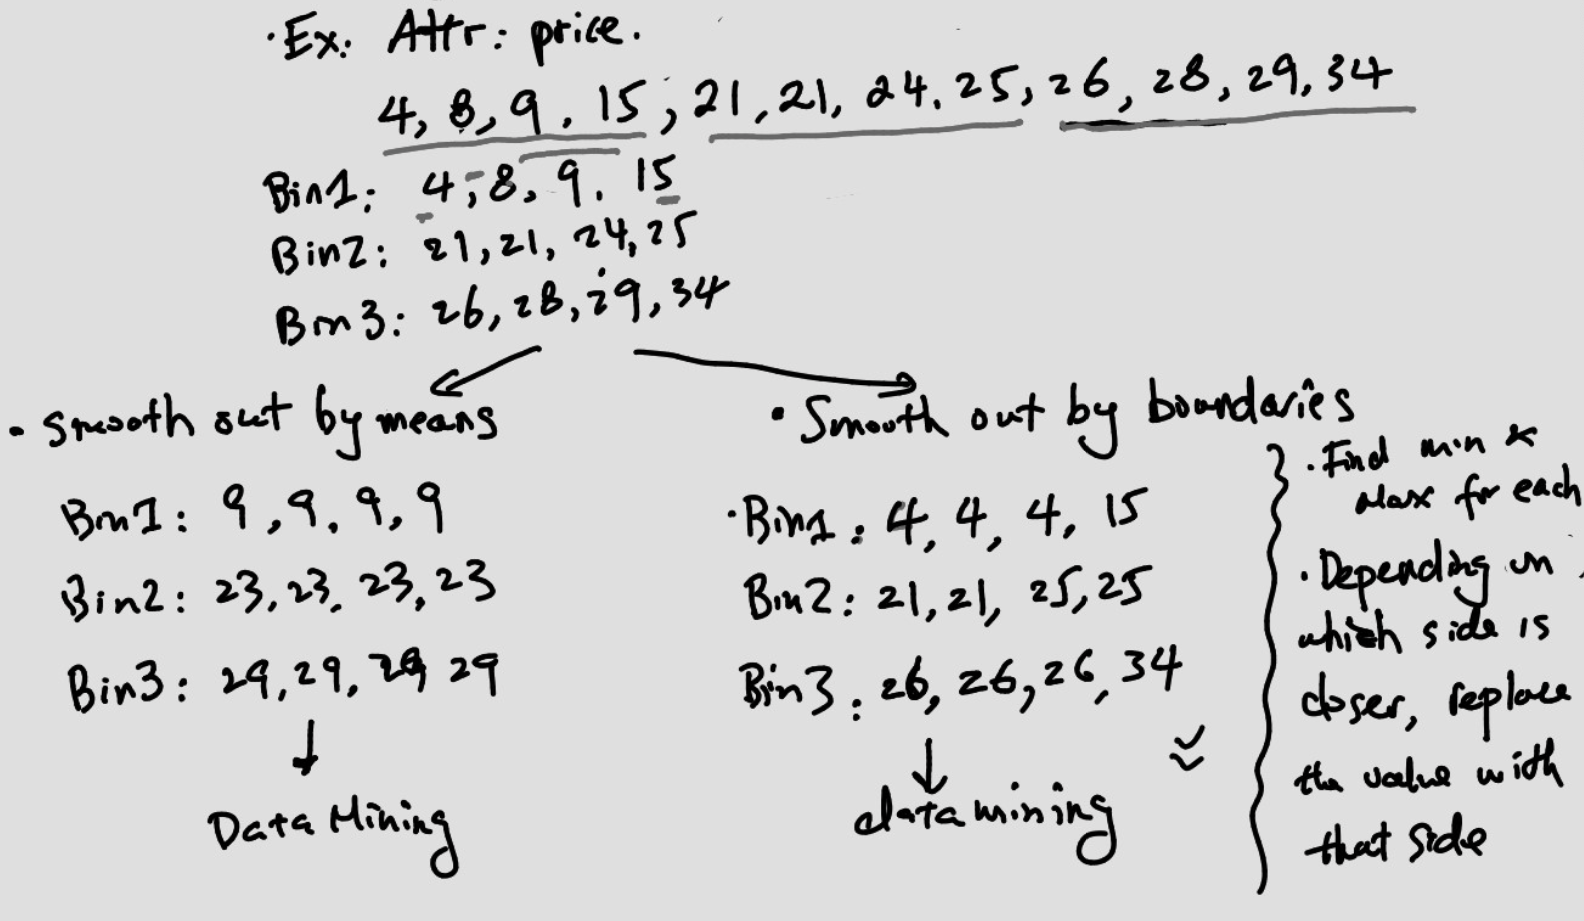 ·Ex: Attr: price.
4, 8, 9, 15, 21, 21, 24, 25, 26, 28, 29, 34
Bin1: 4, 8, 9, 15
Bin2: 21, 21, 24, 25
Bin3: 26, 28, 29, 34
· Smooth out by means
Bin1: 9, 9, 9, 9
Bin2: 23, 23, 23, 23
Bin3: 29, 29, 29 29
Data Mining
· Smooth out by boundaries
·Bin1: 4, 4, 4, 15
Bin2: 21, 21, 25, 25
Bin3: 26, 26, 26, 34
data mining
· Find min &
Max for each
· Depending on
which side is
closer, replace
the value with
that side